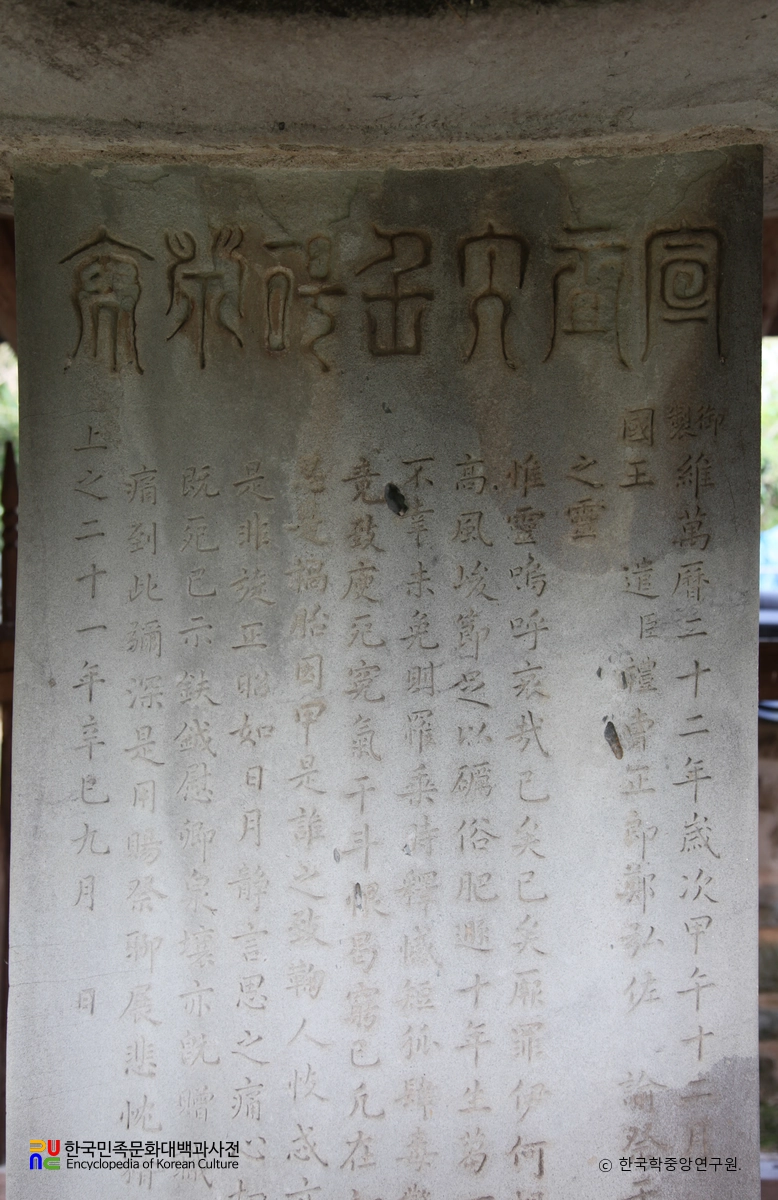 宣廟
御製
維萬曆二十二年歲次甲午十二月
國王 遣臣禮曹正郎鄭弘佐 諭祭
之靈
惟靈嗚呼哀哉已矣已矣厥罪伊何
高風峻節足以礪俗肥遯十年生芻
不幸未免罔羅乘時釋憾短狐肆毒
竟致庾死寃氣干斗恨曷窮已凡在
胎因甲是誰之致鞠人忮忒
是非旋正昭如日月靜言思之痛心
既死已示鈇鉞慰卿泉壤亦旣贈
痛到此彌深是用暘祭聊展悲忱
上之二十一年辛巳九月 日
한국민족문화대백과사전
Encyclopedia of Korean Culture
ⓒ 한국학중앙연구원.